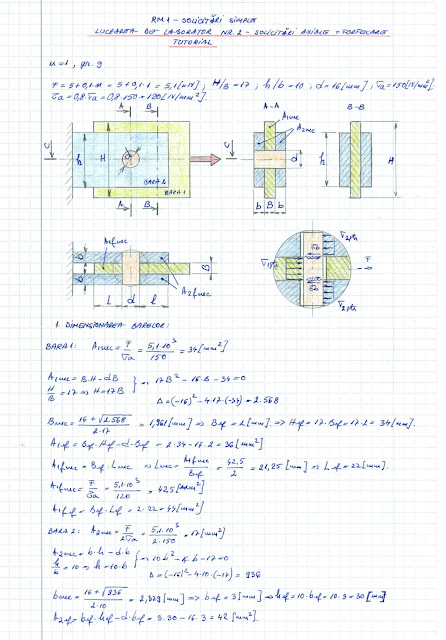 RM1 - SOLICITĂRI SIMPLE
LUCRAREA DE LABORATOR NR.2 - SOLICITĂRI AXIALE + FORFECARE
TUTORIAL
n=1, gr. 9
F = 5+0,1·n = 5+0,1·1 = 5,1 [kN] ; H/B = 17 ; h/b = 10 ; d = 16 [mm] ; σa = 150 [N/mm²].
τa = 0,8·σa = 0,8·150 = 120 [N/mm²].
A B A-A B-B
A1nec
A2nec
C C
h H d d h H
BARA 2
BARA 1
A B b B b
A1fnec
b b B
A2fnec
L d l
σ1ptr σ2ptr F
σ2ptr
1. DIMENSIONAREA BARELOR:
BARA 1: A1nec = F/σa = 5,1·10³/150 = 34 [mm²]
A1nec = B·H - d·B
H/B = 17 ⇒ H = 17B } ⇒ 17B² - 16·B - 34 = 0
Δ = (-16)² - 4·17·(-34) = 2.568
Bnec = (16 + √2.568)/(2·17) = 1,961 [mm] ⇒ Bef = 2 [mm]. ⇒ Hef = 17·Bef = 17·2 = 34 [mm].
A1ef = Bef·Hef - d·Bef = 2·34 - 16·2 = 36 [mm²]
A1fnec = Bef·Lnec ⇒ Lnec = A1fnec/Bef = 42,5/2 = 21,25 [mm] ⇒ Lef = 22 [mm].
A1fnec = F/τa = 5,1·10³/120 = 42,5 [mm²]
A1fef = Bef·Lef = 2·22 = 44 [mm²]
BARA 2: A2nec = F/2σa = 5,1·10³/2·150 = 17 [mm²]
A2nec = b·h - d·b
h/b = 10 ⇒ h = 10b } ⇒ 10b² - 16·b - 17 = 0
Δ = (-16)² - 4·10·(-17) = 936
bnec = (16 + √936)/(2·10) = 2,329 [mm] ⇒ bef = 3 [mm] ⇒ hef = 10·bef = 10·3 = 30 [mm]
A2ef = bef·hef - d·bef = 3·30 - 16·3 = 42 [mm²].